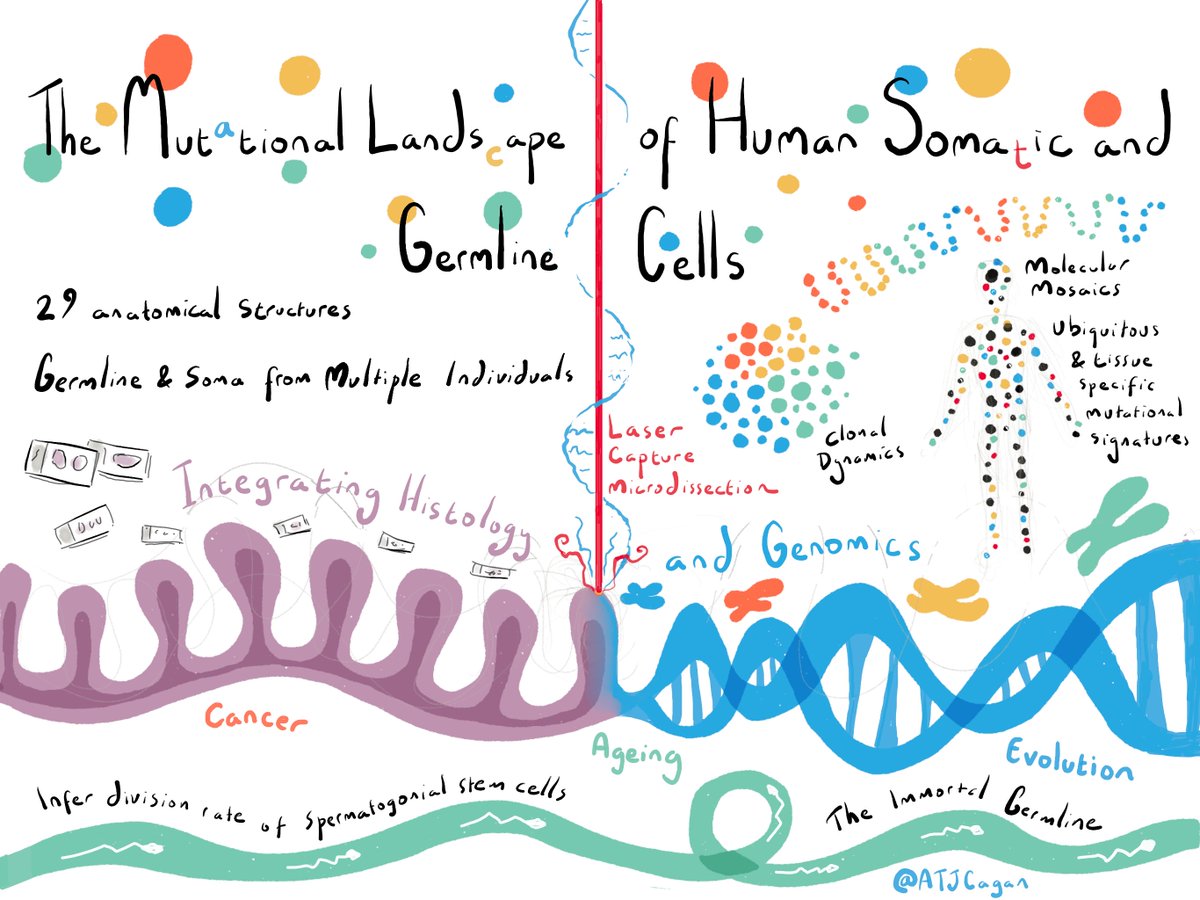 The Mutational Landscape of Human Somatic and
Germline Cells
29 anatomical structures
Germline & Soma from Multiple Individuals
Molecular
Mosaics
Ubiquitous
& tissue
specific
mutational
signatures
Clonal
Dynamics
Laser
Capture
Microdissection
Integrating Histology
and Genomics
Cancer
Ageing
Evolution
Infer division rate of spermatogonial stem cells
The Immortal Germline
@ATJCagan